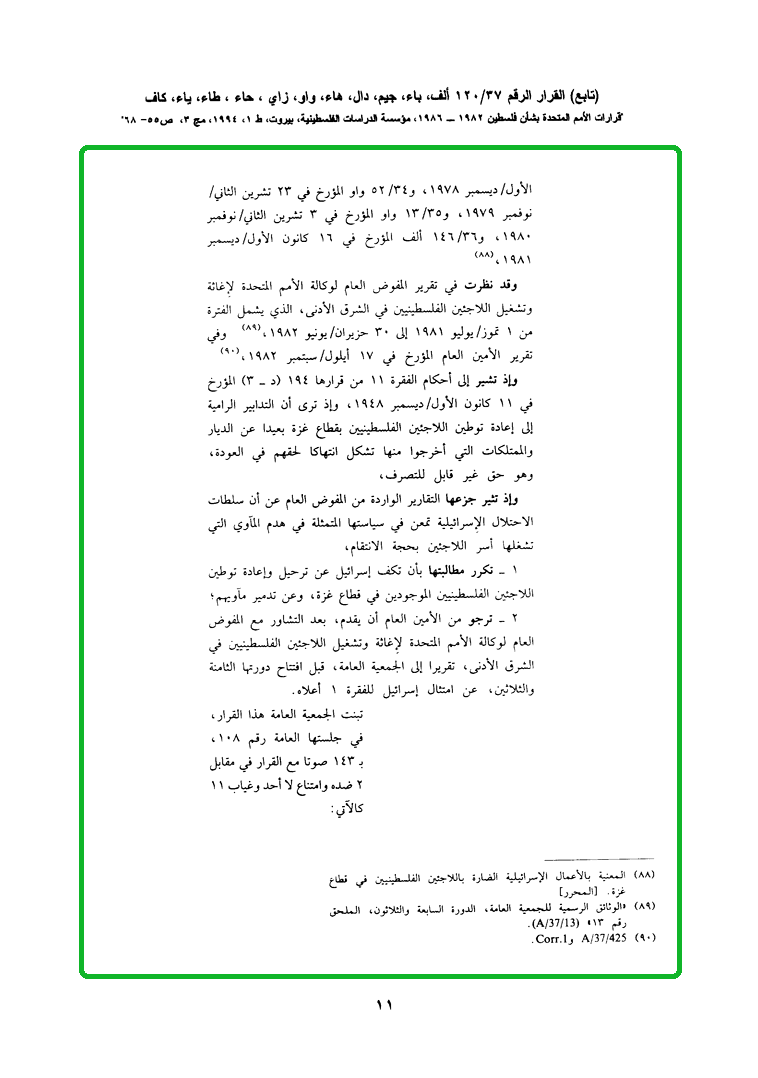 (تابع) القرار الرقم ١٢٠/٣٧ ألف، باء، جيم، دال، هاء، واو، زاي ، حاء ، طاء، ياء، كاف
"قرارات الأمم المتحدة بشأن فلسطين ١٩٨٢ ــ ١٩٨٦، مؤسسة الدراسات الفلسطينية، بيروت، ط ١، ١٩٩٤، مج ٣، ص٥٥- ٦٨"
الأول/ديسمبر ١٩٧٨، و٥٢/٣٤ واو المؤرخ في ٢٣ تشرين الثاني/
نوفمبر ١٩٧٩، و١٣/٣٥ واو المؤرخ في ٣ تشرين الثاني/نوفمبر
١٩٨٠، و١٤٦/٣٦ ألف المؤرخ في ١٦ كانون الأول/ديسمبر
١٩٨١،(٨٨)
وقد نظرت في تقرير المفوض العام لوكالة الأمم المتحدة لإغاثة
وتشغيل اللاجئين الفلسطينيين في الشرق الأدنى، الذي يشمل الفترة
من ١ تموز/يوليو ١٩٨١ إلى ٣٠ حزيران/يونيو ١٩٨٢،(٨٩) وفي
تقرير الأمين العام المؤرخ في ١٧ أيلول/سبتمبر ١٩٨٢،(٩٠)
وإذ تشير إلى أحكام الفقرة ١١ من قرارها ١٩٤ (د ـ ٣) المؤرخ
في ١١ كانون الأول/ديسمبر ١٩٤٨، وإذ ترى أن التدابير الرامية
إلى إعادة توطين اللاجئين الفلسطينيين بقطاع غزة بعيدا عن الديار
والممتلكات التي أخرجوا منها تشكل انتهاكا لحقهم في العودة،
وهو حق غير قابل للتصرف،
وإذ تثير جزعها التقارير الواردة من المفوض العام عن أن سلطات
الاحتلال الإسرائيلية تمعن في سياستها المتمثلة في هدم المآوي التي
تشغلها أسر اللاجئين بحجة الانتقام،
١ ـ تكرر مطالبتها بأن تكف إسرائيل عن ترحيل وإعادة توطين
اللاجئين الفلسطينيين الموجودين في قطاع غزة، وعن تدمير مآويهم؛
٢ ـ ترجو من الأمين العام أن يقدم، بعد التشاور مع المفوض
العام لوكالة الأمم المتحدة لإغاثة وتشغيل اللاجئين الفلسطينيين في
الشرق الأدنى، تقريرا إلى الجمعية العامة، قبل افتتاح دورتها الثامنة
والثلاثين، عن امتثال إسرائيل للفقرة ١ أعلاه.
تبنت الجمعية العامة هذا القرار،
في جلستها العامة رقم ١٠٨،
بـ ١٤٣ صوتا مع القرار في مقابل
٢ ضده وامتناع لا أحد وغياب ١١
كالآتي:
(٨٨) المعنية بالأعمال الإسرائيلية الضارة باللاجئين الفلسطينيين في قطاع
غزة. [المحرر]
(٨٩) «الوثائق الرسمية للجمعية العامة، الدورة السابعة والثلاثون، الملحق
رقم ١٣» (A/37/13).
(٩٠) A/37/425 وCorr.1.
١١